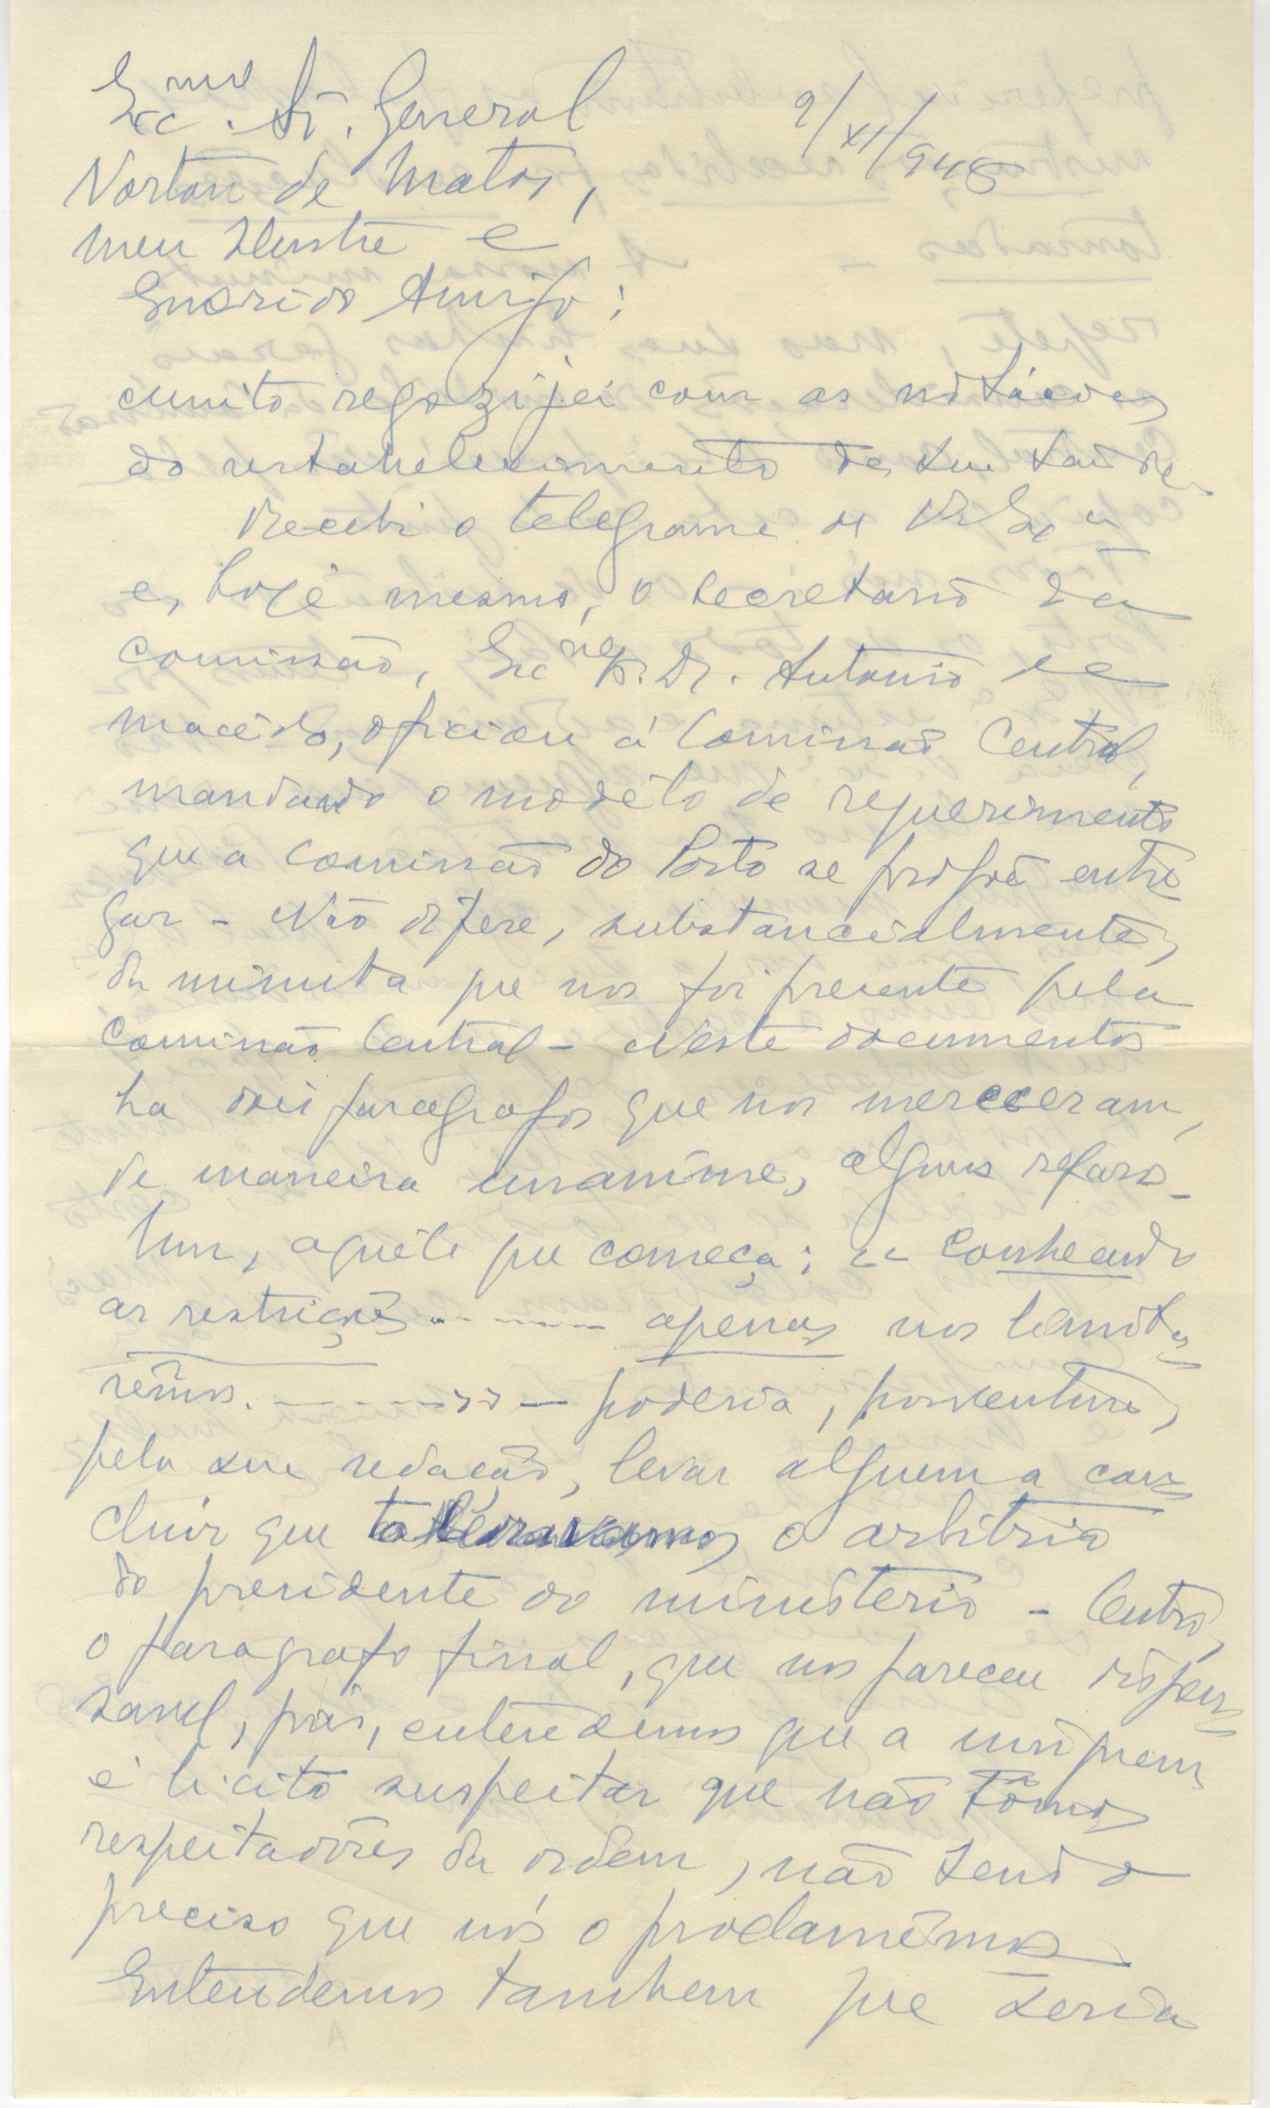 Exc.mo Sr. General 9/XI/948
Norton de Matos,
meu Ilustre e
Querido Amigo:
muito regozijei com as notícias
do restabelecimento da sua saúde.
Recebi o telegrama de V. Ex.a
e, hoje mesmo, o secretario da
comissão, Exc.mo Sr. Dr. Antonio de
Macêdo, oficiou á Comissão Central,
mandando o modêlo de requerimento
que a comissão do Porto se propõe entre
gar - Não difere, substancialmente,
da minuta que nos foi presente pela
Comissão Central - Neste documento
ha dois paragrafos que nos mereceram,
de maneira unanime, alguns reparos -
Um, aquêle que começa: "Conhecendo
as restrições ------ apenas nos limita
rêmos. -----" - poderia, porventura,
pela sua redação, levar alguem a con
cluir que toleravamos o arbitrio
do presidente do ministerio - Outro,
o paragrafo final, que nos pareceu dispen
savel, pois, entendemos que a ninguem
é licito suspeitar que não sômos
respeitadôres da ordem, não sendo
preciso que nós o proclamêmos
Entendemos tambem que seria